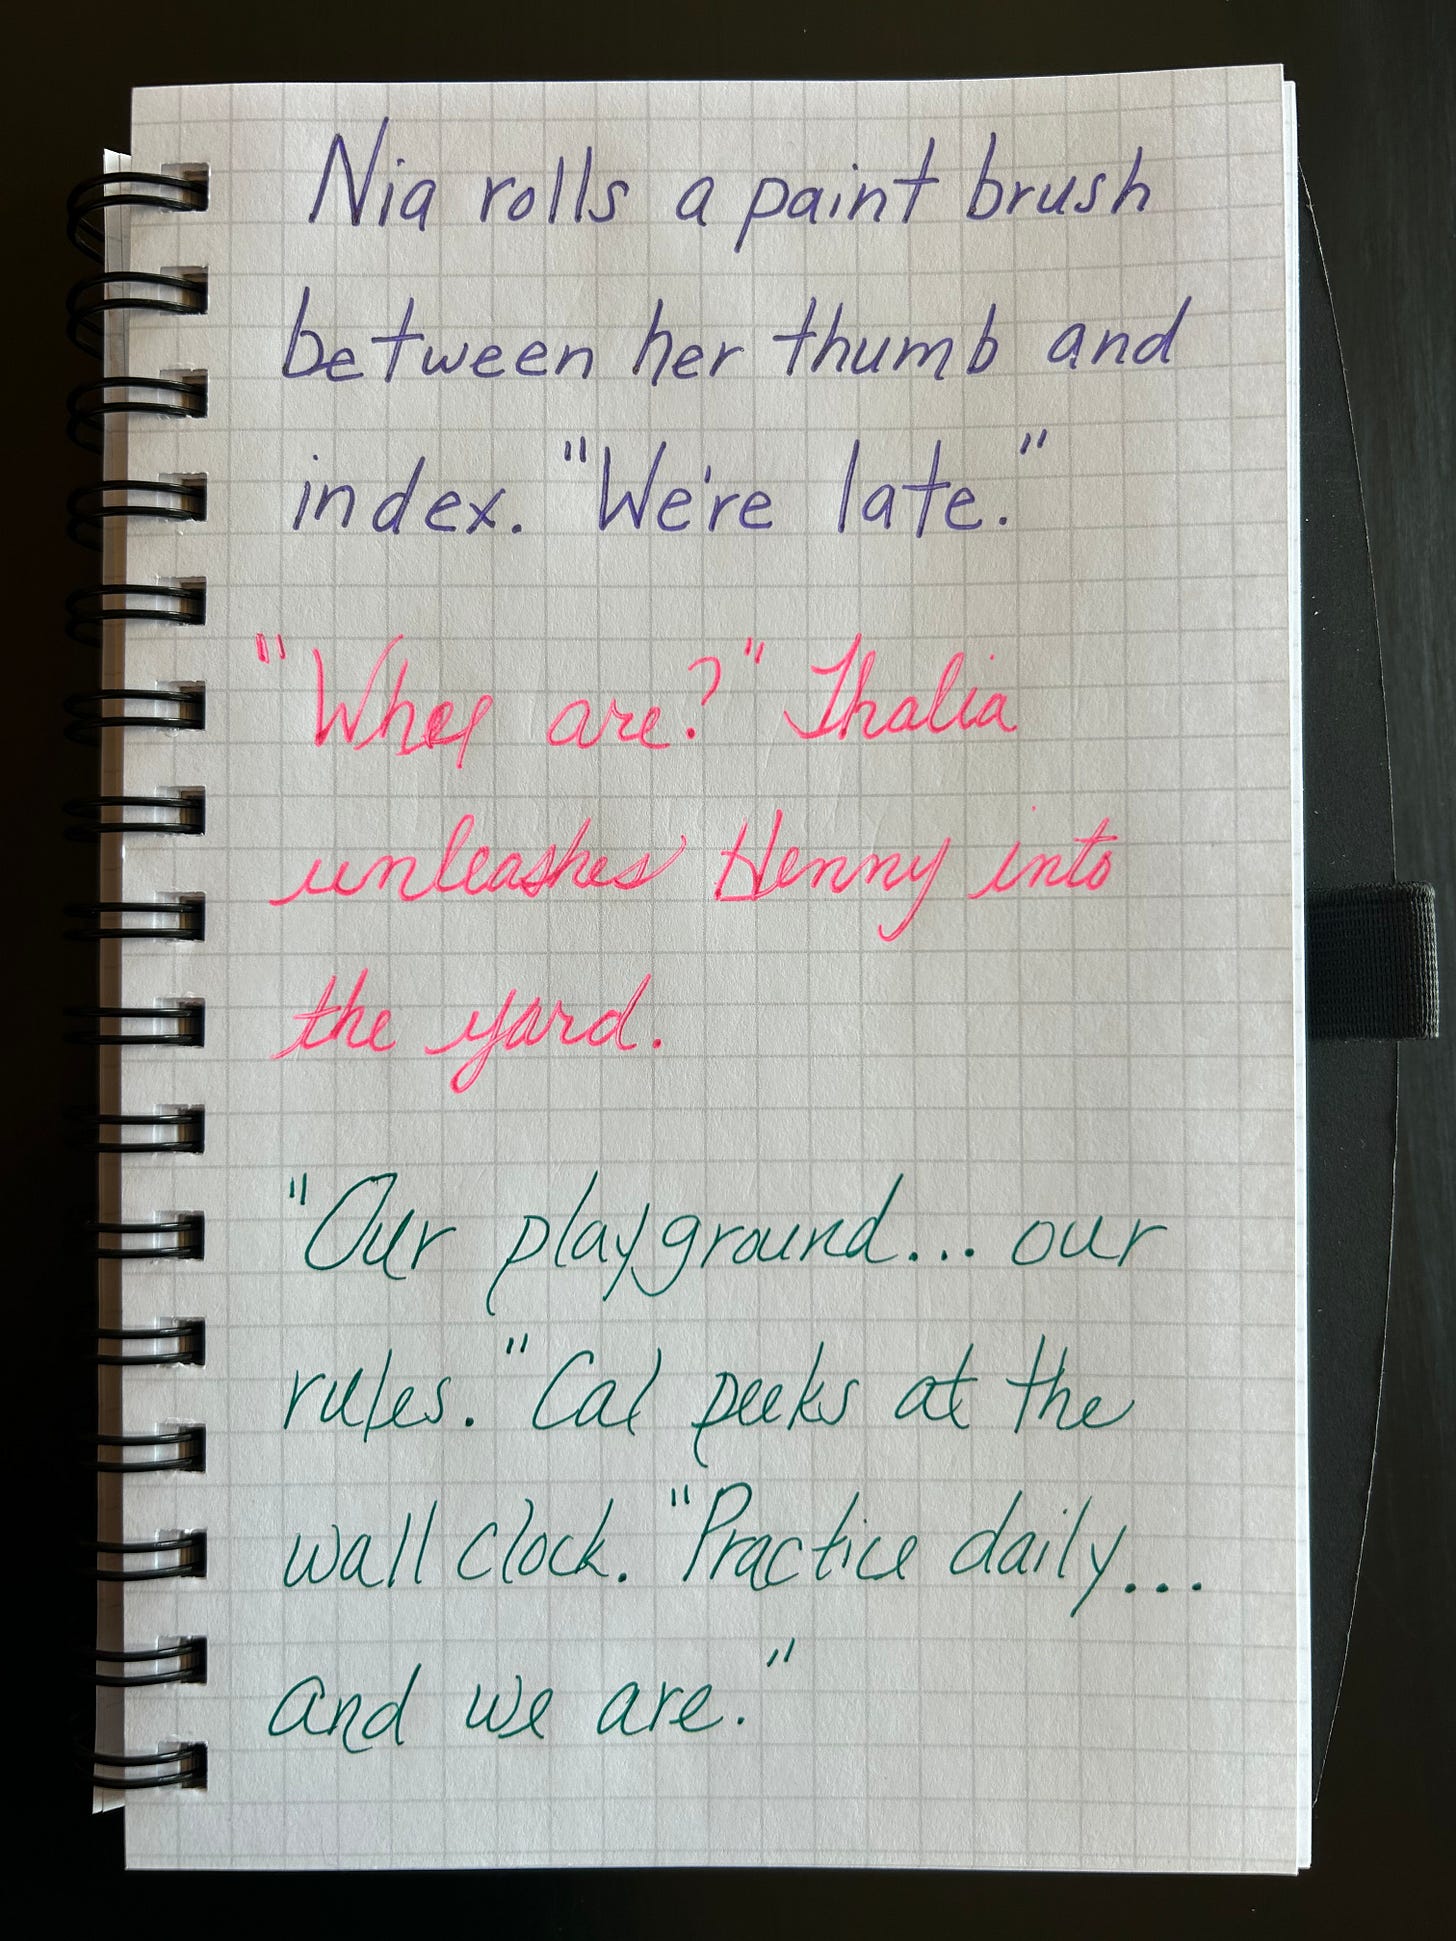 Nia rolls a paint brush
between her thumb and
index. "We're late."
are?" Thalia
unleashes Henny into
the yard.
"Our playground... our
rules." Cal peeks at the
wall clock. "Practice daily...
and we are."